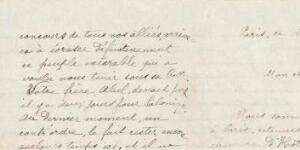 concours de tous nos alliés arrive
ra à écraser définitivement
ce peuple misérable qui a
voulu nous tenir sous sa
Votre frère, Abel, devait
il y a deux jours pour
au dernier moment, un
contre ordre, le fait rester encore
quelques temps ici, et il va
Paris, ce
Mon ch
Nous som
à Paris, retenu
D'H